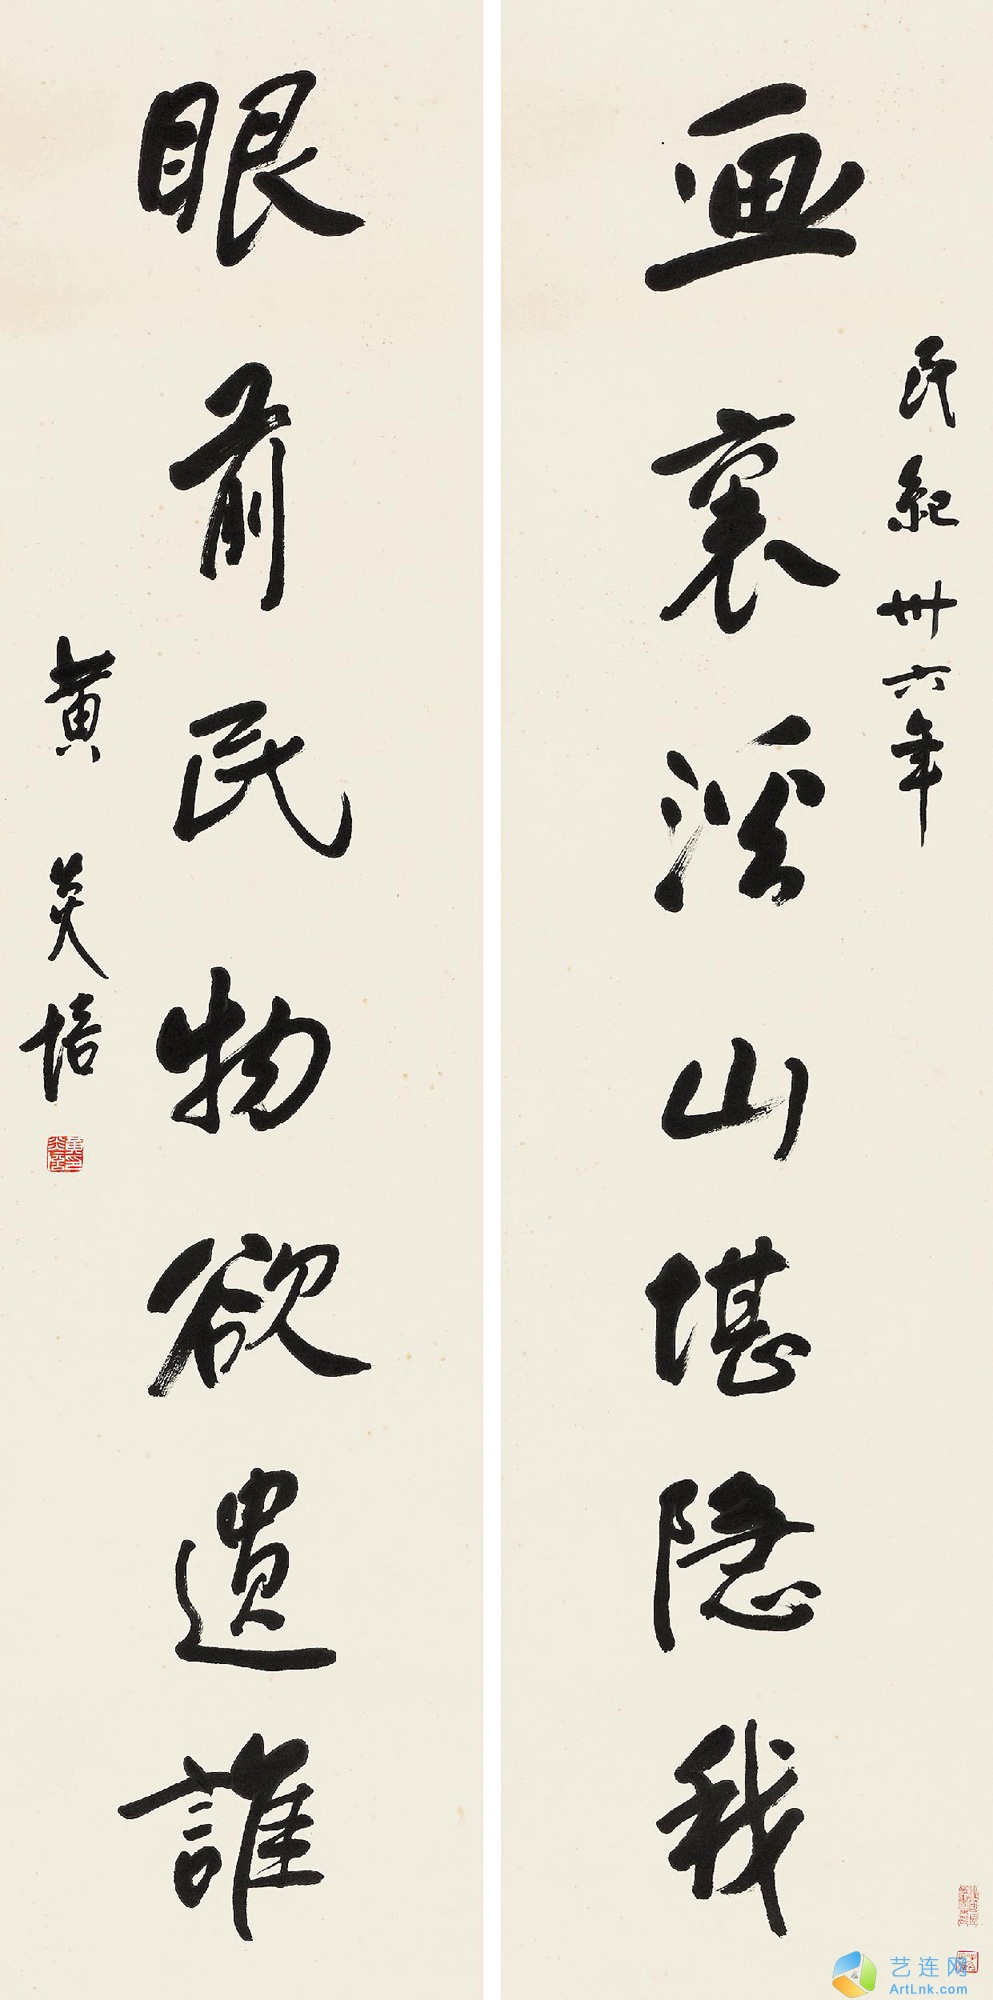 画裏溪山堪隐我
民紀卅六年
眼前民物欲遺誰
黄炎培
艺连网
ArtLnk.com